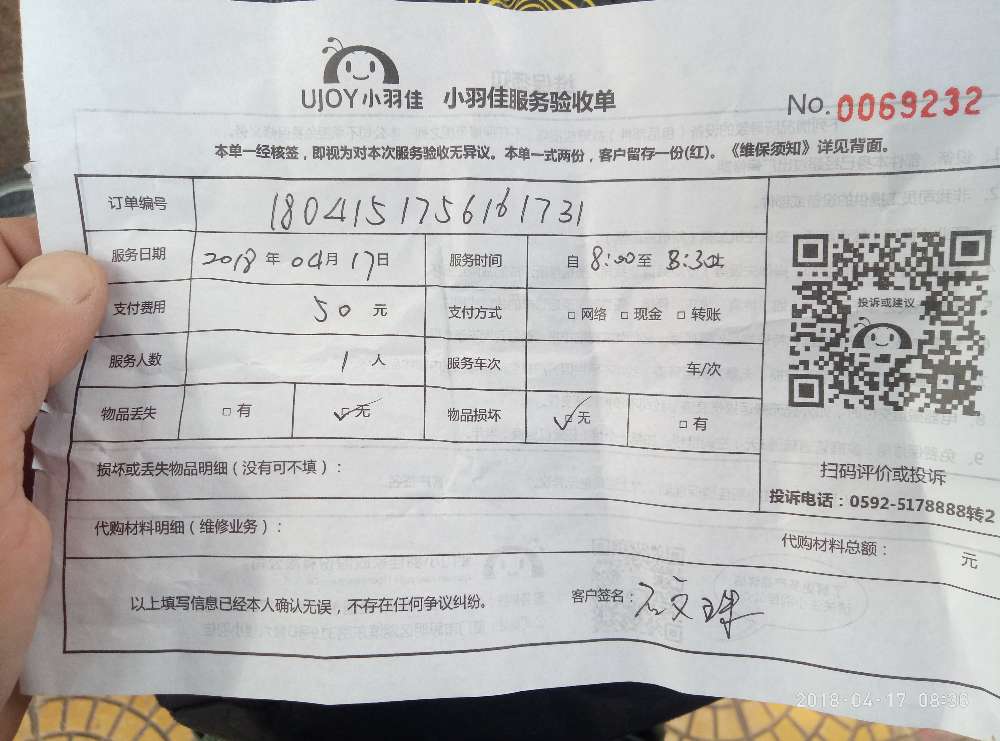 UJOY小羽佳 小羽佳服务验收单
No. 0069232
本单一经核签，即视为对本次服务验收无异议。本单一式两份，客户留存一份(红)。《维保须知》详见背面。
订单编号 1804151756161731
服务日期 2018 年 04 月 17 日 服务时间 自 8:00 至 8:30止
支付费用 50 元 支付方式 □ 网络 □ 现金 □ 转账
服务人数 1 人 服务车次 车/次
物品丢失 □ 有 ☑ 无 物品损坏 ☑ 无 □ 有
投诉或建议
扫码评价或投诉
投诉电话：0592-5178888转2
损坏或丢失物品明细（没有可不填）：
代购材料明细（维修业务）：
代购材料总额： 元
以上填写信息已经本人确认无误，不存在任何争议纠纷。 客户签名：
2018-04-17 08:36